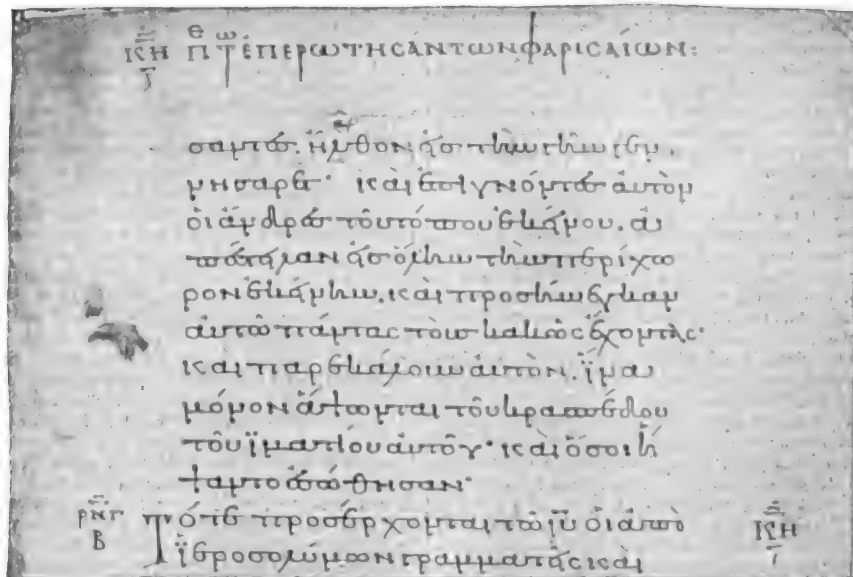 Κ̅Η̅ ΠΕ ΤΩ ἘΠΕΡΩΤΗCΆΝΤΩΝ ΦΑΡΙCΑΊΩΝ:
σαντες. ἦλθον εἰς τὴν γῆν γεν
νησαρέτ· καὶ ἐπιγνόντες αὐτὸν
οἱ ἄνδρες τοῦ τόπου ἐκείνου. ἀ
πέστειλαν εἰς ὅλην τὴν περίχω
ρον ἐκείνην. καὶ προσήνεγκαν
αὐτῶ πάντας τοὺς κακῶς ἔχοντας·
καὶ παρεκάλουν αὐτὸν. ἵνα
μόνον ἅψωνται τοῦ κρασπέδου
τοῦ ἱματίου αὐτοῦ· καὶ ὅσοι ἥ
ψαντο ἐσώθησαν·
Τότε προσέρχονται τῶ ι̅υ̅ οἱ ἀπὸ Κ̅Η̅
ἱεροσολύμων γραμματεῖς καὶ